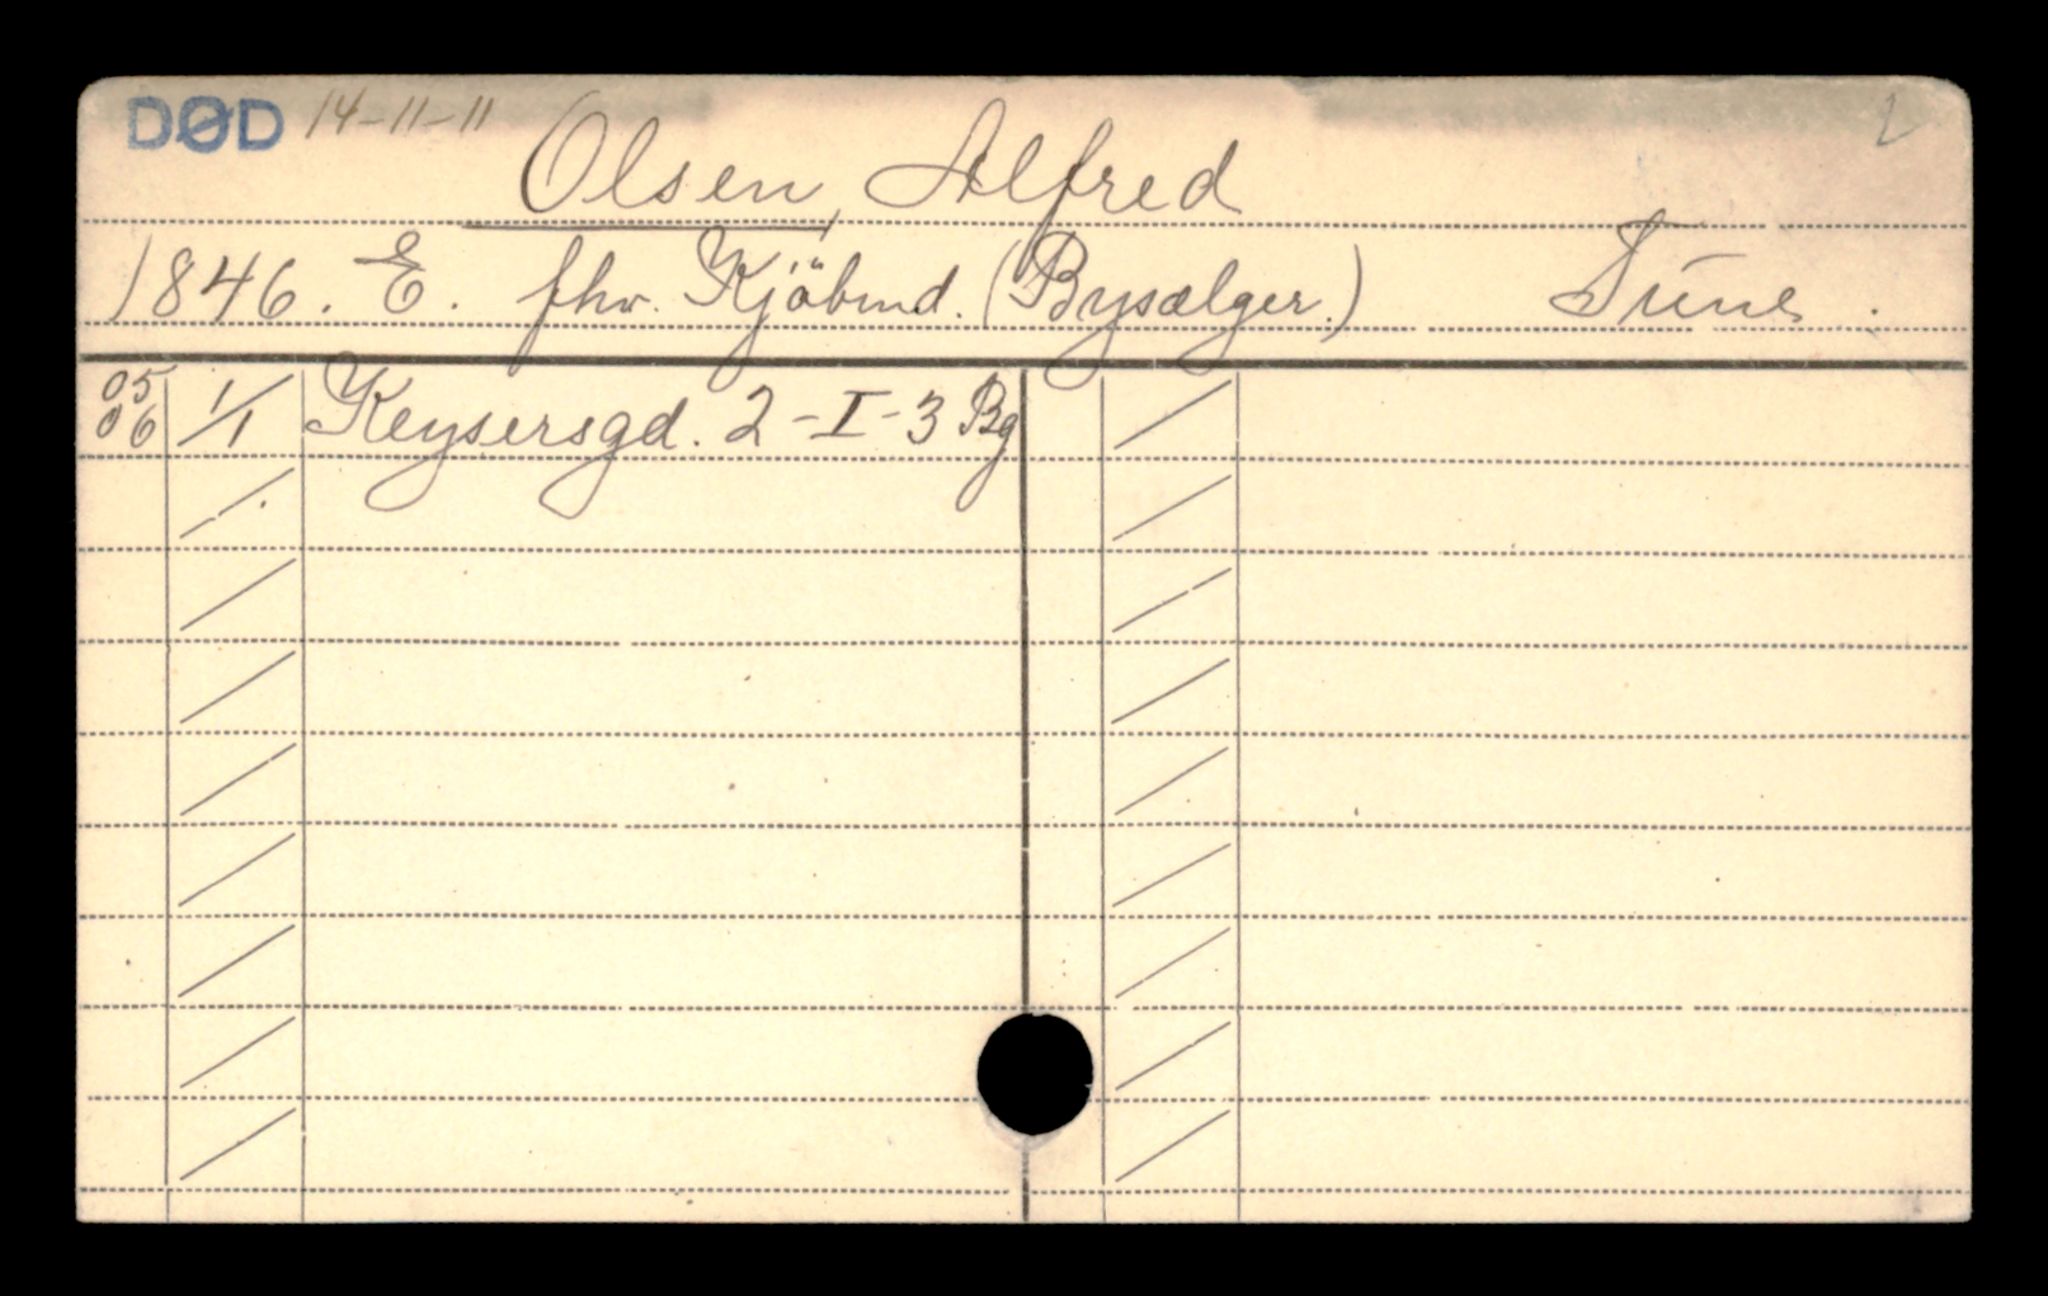 DØD 14-11-11
Olsen, Alfred
1846. E. fhv. Kjöbmd. (Bysælger.) Tune.
05 06 1/1 Keysersgd. 2-I-3 Bg